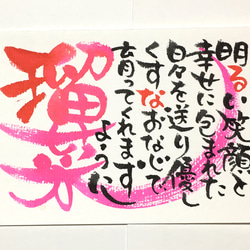 明るい笑顔と
幸せに包まれた
日々を送り優し
くすなおな心で
育ってくれます
ように
瑠菜